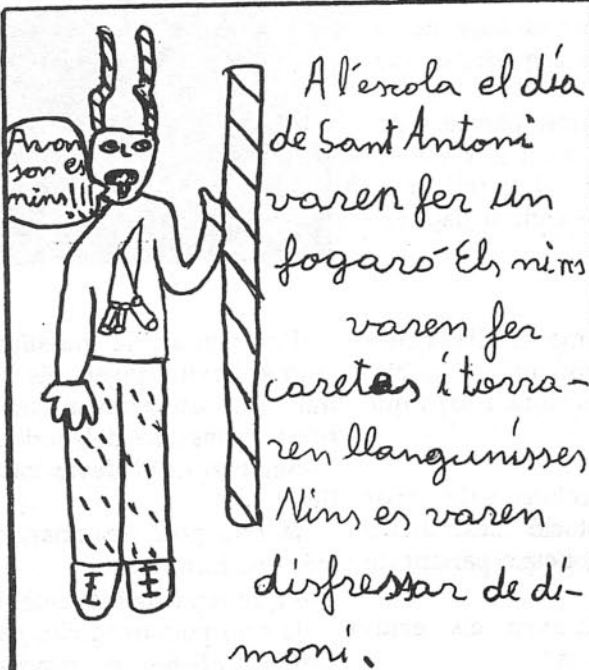 Avon
son es
nins!!!
A l'escola el día
de Sant Antoni
varen fer un
fogaró Els nins
varen fer
caretes i torra-
ren llangunisses
Nins es varen
disfressar de di-
moni.